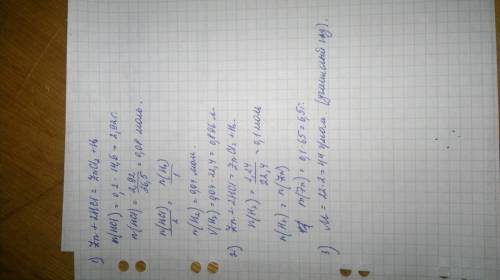 1) Zn + 2HCl = ZnCl₂ + H₂
m(HCl) = 0,2 · 14,6 = 2,92 г.
n(HCl) = 2,92/36,5 = 0,08 моль.
n(HCl)/2 = n(H₂)/1
n(H₂) = 0,04 моль
V(H₂) = 0,04 · 22,4 = 0,896 л.
2) Zn + 2HCl = ZnCl₂ + H₂
n(H₂) = 2,24/22,4 = 0,1 моль
n(H₂) = n(Zn)
m(Zn) = 0,1 · 65 = 6,5 г.
3) M = 22 · 2 = 44 г/моль. (углекислый газ).